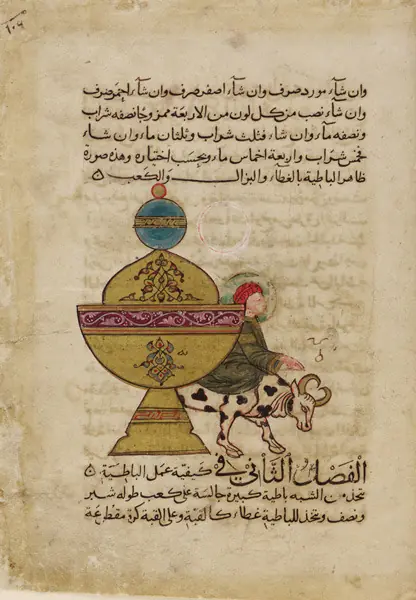 ١٠٦
وان شآء مورد صرف وان شآء اصفر صرف وان شآء احمر صرف
وان شآء نصب من كل لون من الاربعة ممزوجا نصفه شراب
ونصفه مآء وان شآء فثلث شراب وثلثان مآء وان شآء
فخمس شراب واربعة اخماس مآء وبحسب اختياره وهذه صورة
ظاهر الباطية بالغطاء والبزال والكعب
الفصل الثاني في كيفية عمل الباطية
تتخذ من الشبه باطية كبيرة جالسة على كعب طوله شبر
ونصف وتتخذ للباطية غطاء كالقبة وعلى القبة كرة مقطعة